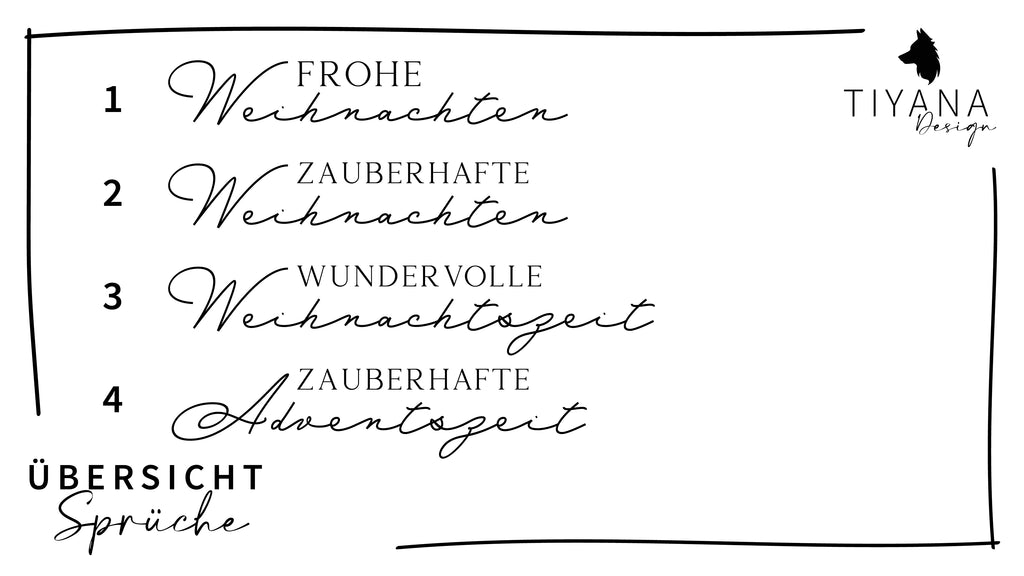 1
FROHE
Weihnachten
TIYANA
Design
2
ZAUBERHAFTE
Weihnachten
3
WUNDERVOLLE
Weihnachtszeit
4
ZAUBERHAFTE
Adventszeit
ÜBERSICHT
Sprüche